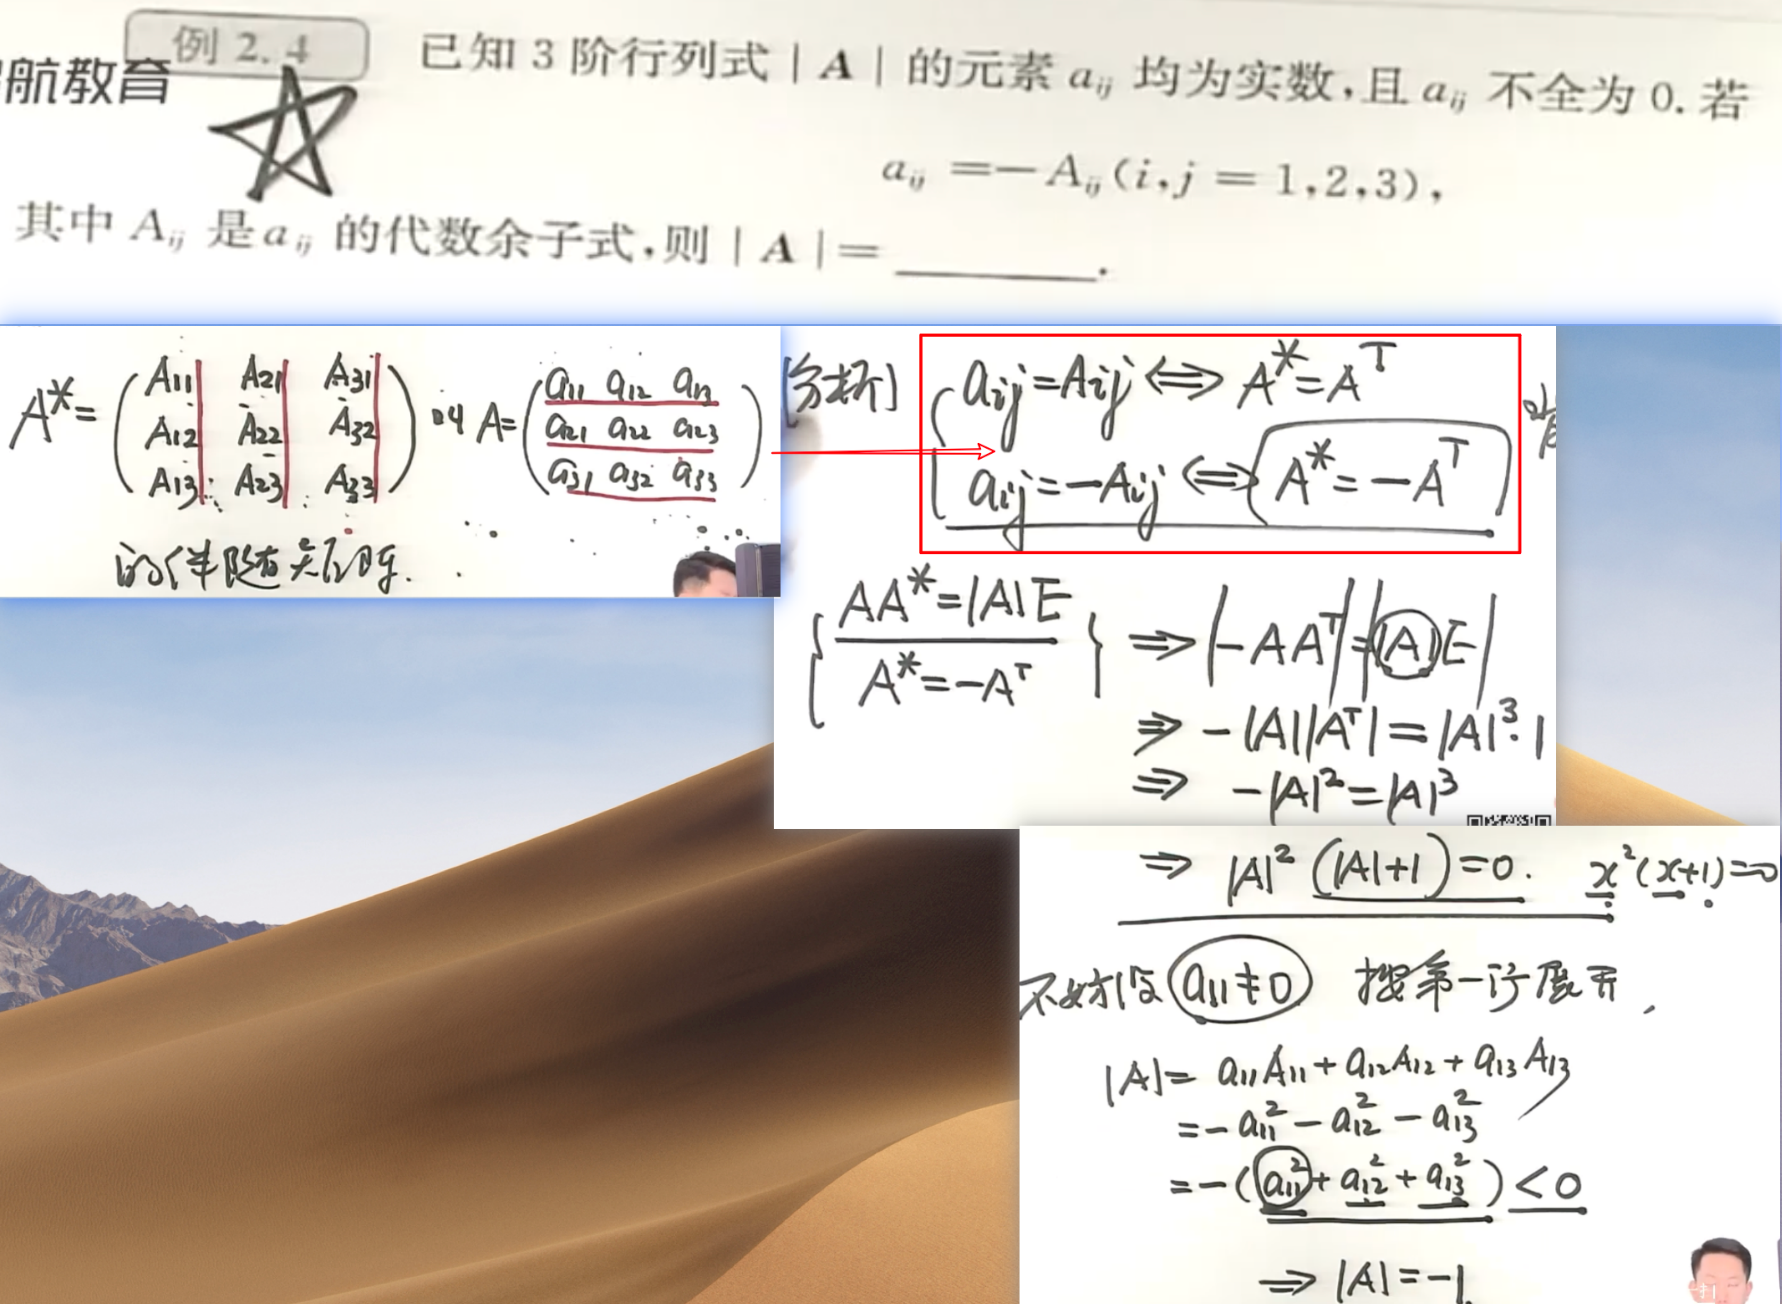 例 2.4 已知 3 阶行列式 | A | 的元素 aᵢⱼ 均为实数,且 aᵢⱼ 不全为 0. 若
航教育
aᵢⱼ = − Aᵢⱼ (i,j = 1,2,3),
其中 Aᵢⱼ 是 aᵢⱼ 的代数余子式,则 | A | = ______.
A* = ( A₁₁ A₂₁ A₃₁
A₁₂ A₂₂ A₃₂
A₁₃ A₂₃ A₃₃ )
A = ( a₁₁ a₁₂ a₁₃
a₂₁ a₂₂ a₂₃
a₃₁ a₃₂ a₃₃ )
[分析]
aᵢⱼ = Aᵢⱼ ⇔ A* = Aᵀ
aᵢⱼ = −Aᵢⱼ ⇔ A* = −Aᵀ
AA* = |A|E
A* = −Aᵀ
⇒ |−AAᵀ| = ||A|E|
⇒ −|A||Aᵀ| = |A|³·1
⇒ −|A|² = |A|³
⇒ |A|² (|A|+1) = 0. x²(x+1)=0
不妨设 a₁₁ ≠ 0 按第一行展开,
|A| = a₁₁A₁₁ + a₁₂A₁₂ + a₁₃A₁₃
= − a₁₁² − a₁₂² − a₁₃²
= −(a₁₁² + a₁₂² + a₁₃²) < 0
⇒ |A| = −1